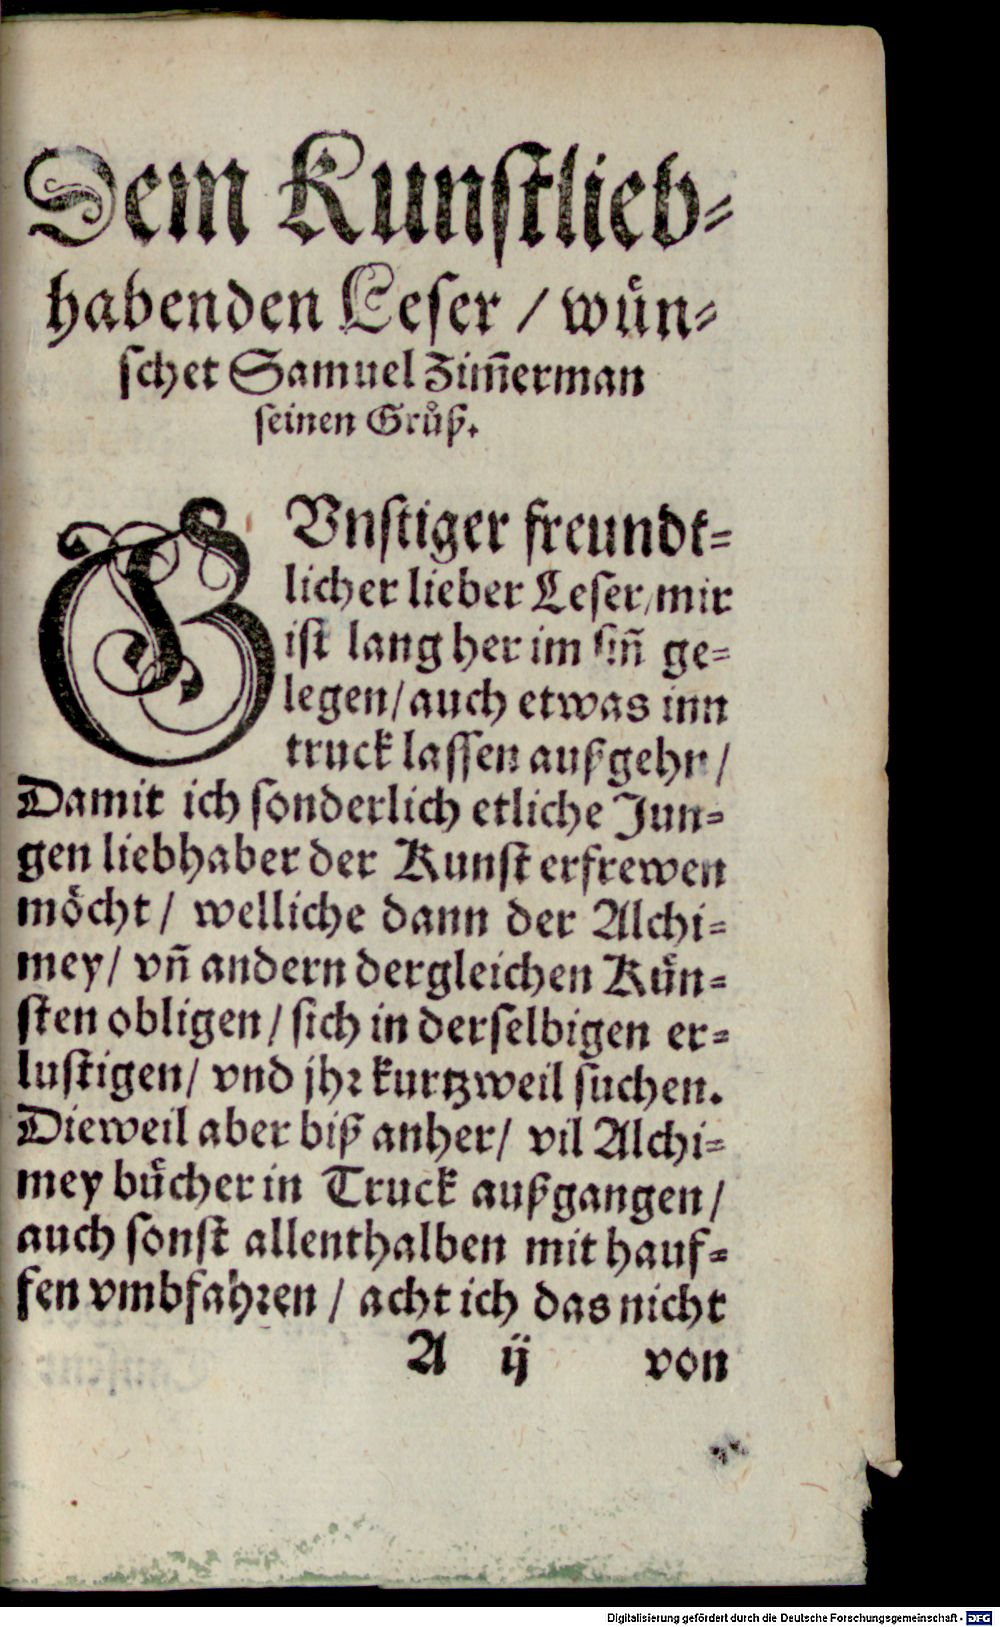 Dem Kunstlieb⸗
habenden Leser / wün⸗
schet Samuel Zim̃erman
seinen Gruͦß.
GVnstiger freundt⸗
licher lieber Leser, mir
ist lang her im siñ ge⸗
legen / auch etwas inn
truck lassen außgehn /
Damit ich sonderlich etliche Jun⸗
gen liebhaber der Kunst erfrewen
moͤcht / welliche dann der Alchi⸗
mey / vñ andern dergleichen Kün⸗
sten obligen / sich in derselbigen er⸗
lustigen / vnd jhꝛ kurtzweil suchen.
Dieweil aber biß anher / vil Alchi⸗
mey buͤcher in Truck außgangen /
auch sonst allenthalben mit hauf⸗
fen vmbfahꝛen / acht ich das nicht
A ij von
Digitalisierung gefördert durch die Deutsche Forschungsgemeinschaft - DFG